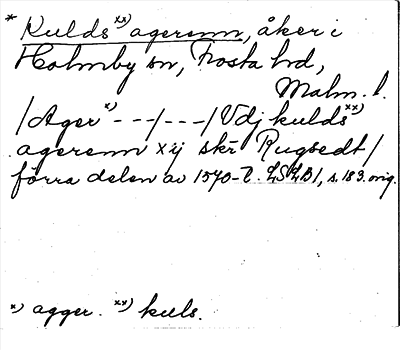 * Kulds xx) agerenn, åker i
Holmby sn, Frosta hd,
Malm. l.
/Ager x) - - -/- - -/Vdj kulds xx)
agerenn xij skr Rugsedt/
förra delen av 1570-t. LSLB1, s. 183. orig.
x) agger. xx) kuls.